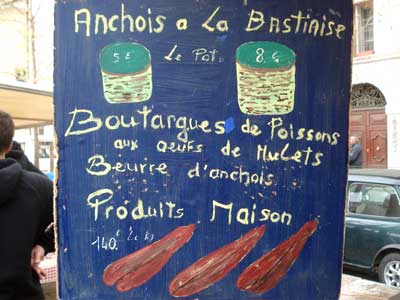 Anchois a La Bastiaise
5€ Le Pot 8.€
Boutargues de Poissons
aux œufs de Mulets
Beurre d'anchois
Produits Maison
140.€ Le Kg